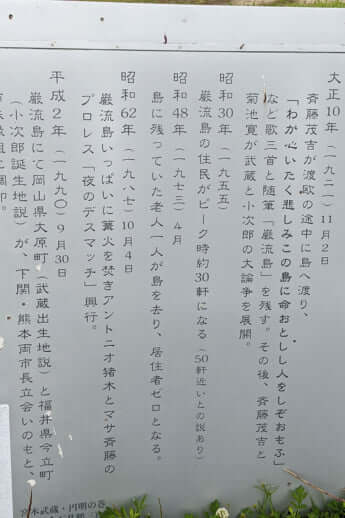 大正10年(一九二一)11月2日
斉藤茂吉が渡欧の途中に島へ渡り、
「わが心いたく悲しみこの島に命おとしし人をしぞおもふ」
など歌三首と随筆「巌流島」を残す。その後、斉藤茂吉と
菊池寛が武蔵と小次郎の大論争を展開。
昭和30年(一九五五)
巌流島の住民がピーク時約30軒になる(50軒近いとの説あり)
昭和48年(一九七三)4月
島に残っていた老人一人が島を去り、居住者ゼロとなる。
昭和62年(一九八七)10月4日
巌流島いっぱいに篝火を焚きアントニオ猪木とマサ斉藤の
プロレス「夜のデスマッチ」興行。
平成2年(一九九〇)9月30日
巌流島にて岡山県大原町(武蔵出生地説)と福井県今立町
(小次郎誕生地説)が、下関・熊本両市長立会いのもと、
宮本武蔵・円明の巻